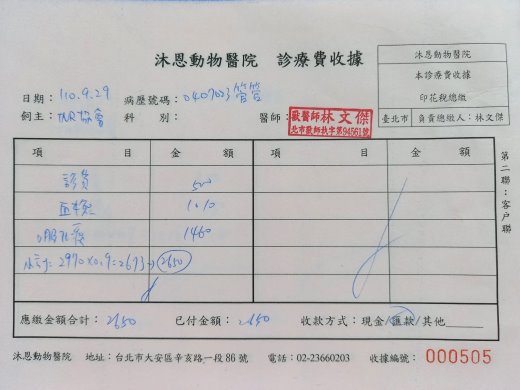 沐恩動物醫院 診療費收據
沐恩動物醫院
本診療費收據
印花稅總繳
臺北市 負責總繳人：林文傑
日期：110.9.29 病歷號碼：0407023
飼主：協會 科別： 醫師：
獸醫師林文傑
北市獸師執字第94561號
項目 金額 項目 金額
診費 500
血檢 1010
1460
小計：2970×0.9=2673→2650
應繳金額合計：2650 已付金額：2650 收款方式：現金/匯款/其他
第二聯：客戶聯
沐恩動物醫院 地址：台北市大安區辛亥路一段86號 電話：02-23660203 收據編號：000505